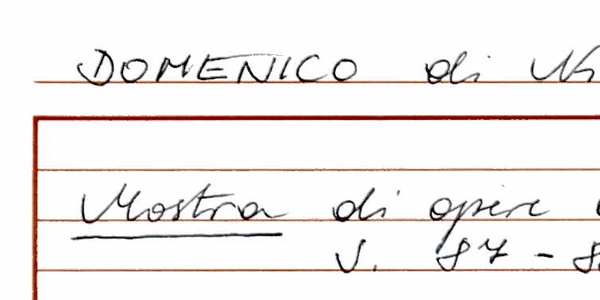 DOMENICO di Ni
Mostra di opere
V. 87 - 8